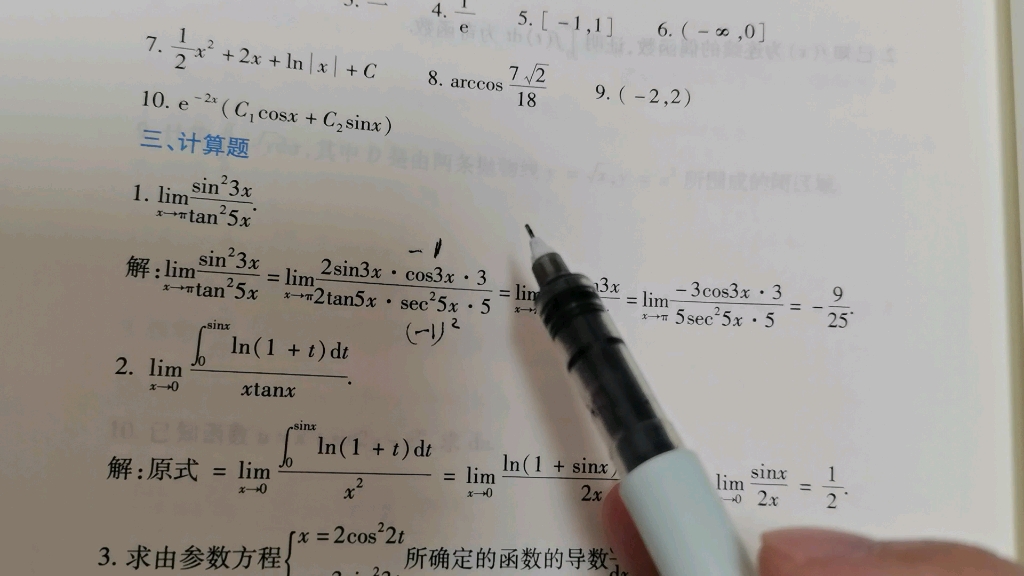 4. 1/e 5. [-1,1] 6. (-∞,0]
7. 1/2 x² + 2x + ln|x| + C 8. arccos 7√2/18 9. (-2,2)
10. e^(-2x) (C₁cosx + C₂sinx)
三、计算题
1. lim_(x→π) sin²3x/tan²5x.
-1
解:lim_(x→π) sin²3x/tan²5x = lim_(x→π) (2sin3x · cos3x · 3)/(2tan5x · sec²5x · 5) = lim 3x = lim_(x→π) (-3cos3x · 3)/(5sec²5x · 5) = -9/25.
(-1)²
2. lim_(x→0) (∫₀^sinx ln(1 + t)dt)/(xtanx).
解:原式 = lim_(x→0) (∫₀^sinx ln(1 + t)dt)/x² = lim_(x→0) ln(1 + sinx)/2x lim_(x→0) sinx/2x = 1/2.
3. 求由参数方程{x = 2cos²2t 所确定的函数的导数